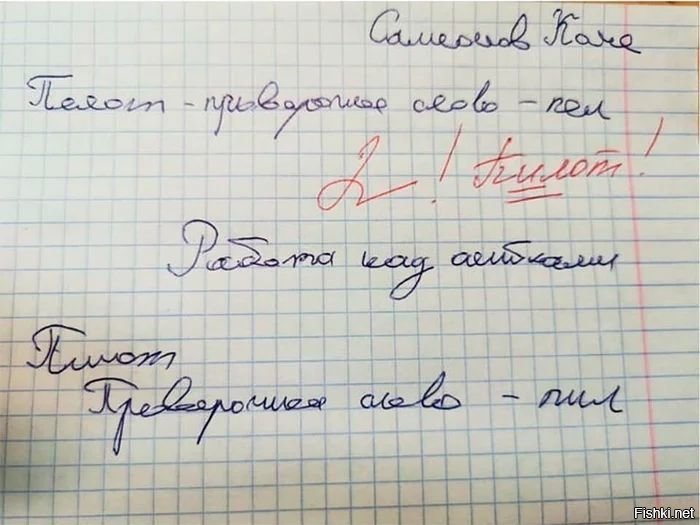 Самсонов Коля
Пелот - проверочное слово - пел
2! Пилот!
Работа над ашибками
Пилот
Преверочное слово - пил
Fishki.net